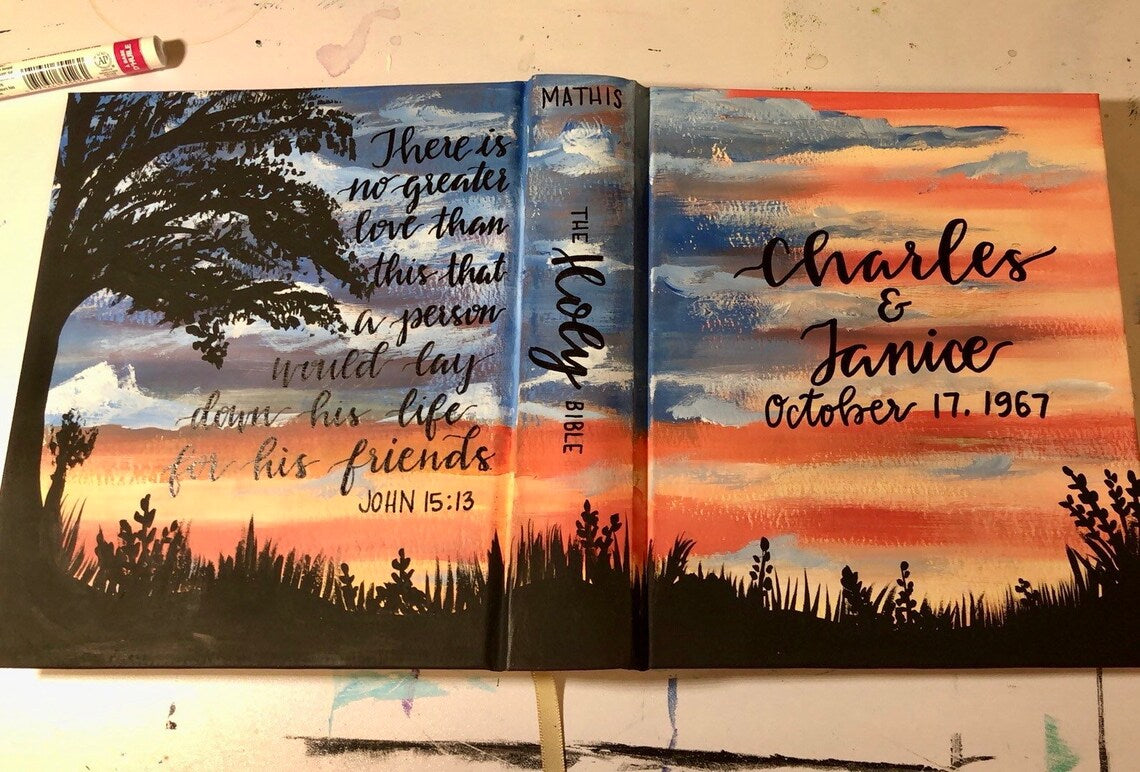 There is
no greater
love than
this that
a person
would lay
down his life
for his friends
JOHN 15:13
MATHIS
THE Holy BIBLE
Charles
&
Janice
October 17. 1967
AP